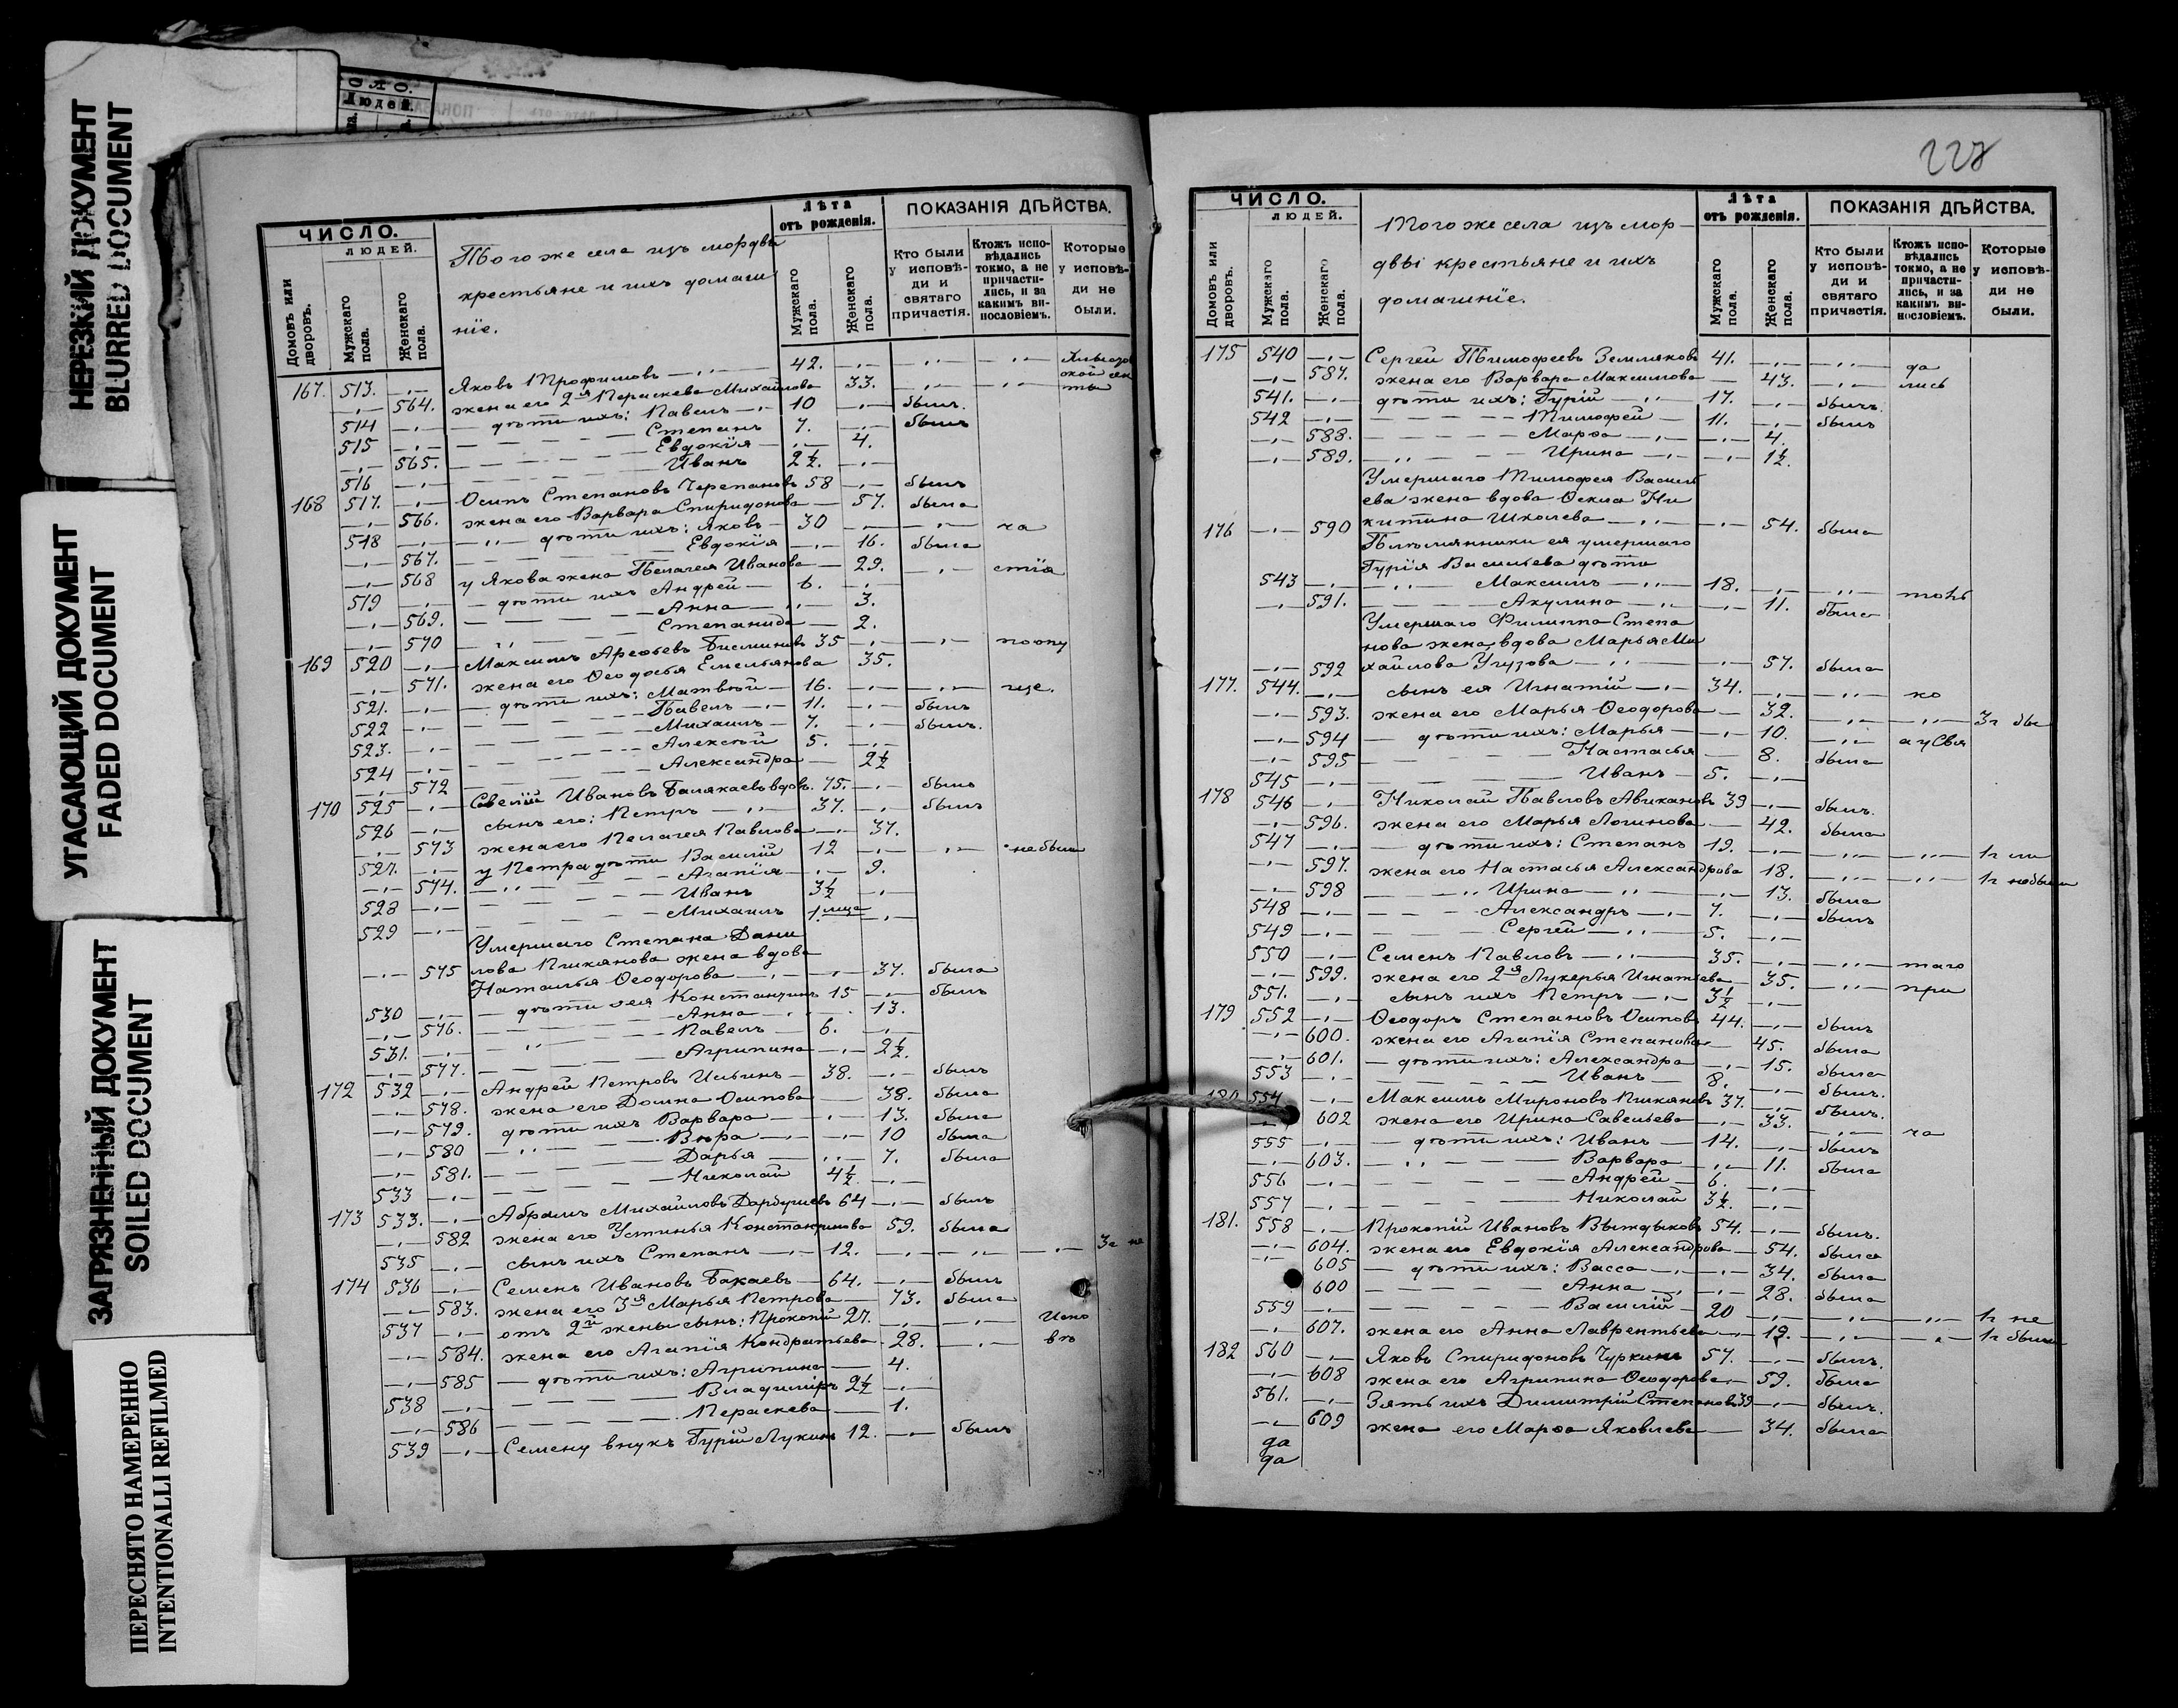 НЕРЕЗКИЙ ДОКУМЕНТ
BLURRED DOCUMENT
УГАСАЮЩИЙ ДОКУМЕНТ
FADED DOCUMENT
ЗАГРЯЗНЕННЫЙ ДОКУМЕНТ
SOILED DOCUMENT
ПЕРЕСНЯТО НАМЕРЕННО
INTENTIONALLI REFILMED
Людей.
ЧИСЛО.
ЛЮДЕЙ.
Домовъ или дворовъ.
Мужскаго пола.
Женскаго пола.
Того же села изъ мордвы
крестьяне и ихъ домаш
ніе.
Лѣта
отъ рожденія.
Мужскаго пола.
Женскаго пола.
ПОКАЗАНІЯ ДѢЙСТВА.
Кто были у исповѣди и святаго причастія.
Ктожъ исповѣдались токмо, а не причастились, и за какимъ винословіемъ.
Которые у исповѣди не были.
167. 513. Яковъ Трофимовъ 42.
564. жена его 2я Параскева Михайлова 33.
514 дѣти ихъ: Павелъ 10 былъ.
515 Степанъ 7. былъ
565. Евдокія 4.
516 Иванъ 2½.
168 517. Осипъ Степановъ Черепановъ 58 былъ
566. жена его Варвара Спиридонова 57. была
518 дѣти ихъ: Яковъ 30 ча
567. Евдокія 16. была
568 у Якова жена Пелагея Иванова 29. стія
519 дѣти ихъ Андрей 6.
569. Анна 3.
570 Степанида 2.
169 520 Максимъ Арефьевъ 35 по опу
571. жена его Ѳеодосья Емельянова 35.
521. дѣти ихъ: Матвѣй 16. ще.
522 Павелъ 11. былъ
523. Михаилъ 7. былъ.
524 Алексѣй 5.
572 Александра 2½
170 525 Савелій Ивановъ Балакаевъ вдов. 75. былъ
526 сынъ его: Петръ 37. былъ
573 жена его Пелагея Павлова 37.
527. у Петра дѣти Василій 12 не были
574. Агапія 9.
528 Иванъ 3½
529 Михаилъ 1. мца
Умершаго Степана Дани
575 лова Пиянова жена вдова
Наталья Ѳеодорова 37. была
530 дѣти ея Константинъ 15 былъ
576. Анна 13.
531. Павелъ 6.
577. Агрипина 2½.
172 532 Андрей Петровъ Ильинъ 38. былъ
578. жена его Домна Осипова 38. была
579. дѣти ихъ Варвара 13. была
580 Вѣра 10 была
581. Дарья 7. была
533 Николай 4½
173 533. Абрамъ Михайловъ Дарбушевъ 64 былъ
582 жена его Устинья Константинова 59. была
535 сынъ ихъ Степанъ 12. 3г не
174 536 Семенъ Ивановъ Бакаевъ 64. былъ
583. жена его 3я Марья Петрова 73. была
537 отъ 2й жены сынъ: Прокопій 27. Испо
584. жена его Агапія Кондратьева 28. вѣ
585 дѣти ихъ: Агрипина 4.
538 Владиміръ 2½
586 Параскева 1.
539 Семену внукъ Гурій Лукинъ 12. былъ
227
ЧИСЛО.
ЛЮДЕЙ.
Домовъ или дворовъ.
Мужскаго пола.
Женскаго пола.
Того же села изъ мор-
двы крестьяне и ихъ
домашніе.
Лѣта
отъ рожденія.
Мужскаго пола.
Женскаго пола.
ПОКАЗАНІЯ ДѢЙСТВА.
Кто были у исповѣди и святаго причастія.
Ктожъ исповѣдались токмо, а не причастились, и за какимъ винословіемъ.
Которые у исповѣди не были.
175 540 Сергей Тимофеевъ Земляковъ 41. да
587. жена его Варвара Максимова 43. лись
541. дѣти ихъ: Гурій 17. былъ.
542 Тимофей 11. былъ
588. Марѳа 4.
589. Ирина 1½.
Умершаго Тимофея Василь
ева жена вдова Ѳекла Ни
176 590 китина Школева 54. была
Племянники ея умершаго
Гурія Васильева дѣти
543 Максимъ 18.
591. Акулина 11. была
Умершаго Филиппа Степа
нова жена, вдова Марья Ми
592 хайлова Угузова 57. была
177. 544. сынъ ея Игнатій 34. ко
593. жена его Марья Ѳеодорова 32. 3г бы
594 дѣти ихъ: Марья 10.
595 Настасья 8. была
545 Иванъ 5.
178 546 Николай Павловъ Авикановъ 39 былъ.
596. жена его Марья Логинова 42. была
547 дѣти ихъ: Степанъ 19.
597. жена его Настасья Александрова 18. 1г не были
598 Ирина 13. была
548 Александръ 7. былъ
549 Сергей 5.
550 Семенъ Павловъ 35. таго
599. жена его 2я Лукерья Игнатьева 35. при
551. сынъ ихъ Петръ 3½
179 552 Ѳеодоръ Степановъ Осиповъ 44. былъ
600. жена его Агапія Степанова 45. была
601. дѣти ихъ: Александра 15. была
553 Иванъ 8. былъ.
180 554 Максимъ Мироновъ 37. былъ.
602 жена его Ирина Савельева 33. ча
555 дѣти ихъ: Иванъ 14. былъ
603. Варвара 11. была
556 Андрей 6.
557 Николай 3½.
181. 558 Прокопій Ивановъ 54. былъ.
604. жена его Евдокія Александрова 54. была
605 дѣти ихъ: Васса 34. была
600 Анна 28. была
559 Василій 20 1г не
607. жена его Анна Лаврентьева 19. 1г были
182 560 Яковъ Спиридоновъ Чуркинъ 57. былъ.
608 жена его Агрипина Ѳеодорова 59. была
561. Зять ихъ Димитрій Степановъ 39 былъ.
609 жена его Марѳа Яковлева 34. была
да
да